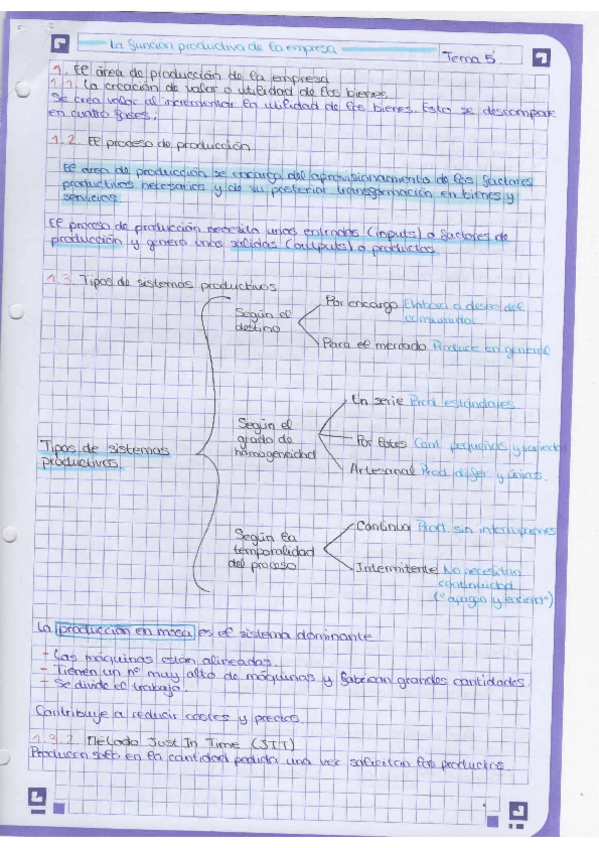 La función productiva de la empresa
Tema 5
1. El área de producción de la empresa
1.1. La creación de valor o utilidad de los bienes
Se crea valor al incrementar la utilidad de los bienes. Esto se descompone
en cuatro fases:
1.2. El proceso de producción
El área de producción se encarga del aprovisionamiento de los factores
productivos necesarios y de su posterior transformación en bienes y
servicios
El proceso de producción necesita unas entradas (inputs) o factores de
producción y genera unas salidas (outputs) o productos.
1.3. Tipos de sistemas productivos
Tipos de sistemas
productivos
Según el
destino
Por encargo Elabora a deseo del
consumidor
Para el mercado Produce en general
Según el
grado de
homogeneidad
En serie Prod. estándares
Por lotes Cant. pequeñas y variadas
Artesanal Prod. difer. y únicas.
Según la
temporalidad
del proceso
Continua Prod. sin interrupciones
Intermitente No necesitan
continuidad
("apagan y encien")
La producción en masa es el sistema dominante
- Las máquinas están alineadas.
- Tienen un nº muy alto de máquinas y fabrican grandes cantidades
- Se divide el trabajo.
Contribuye a reducir costes y precios.
Método Just In Time (JIT)
Producen solo en la cantidad pedida una vez solicitan los productos.